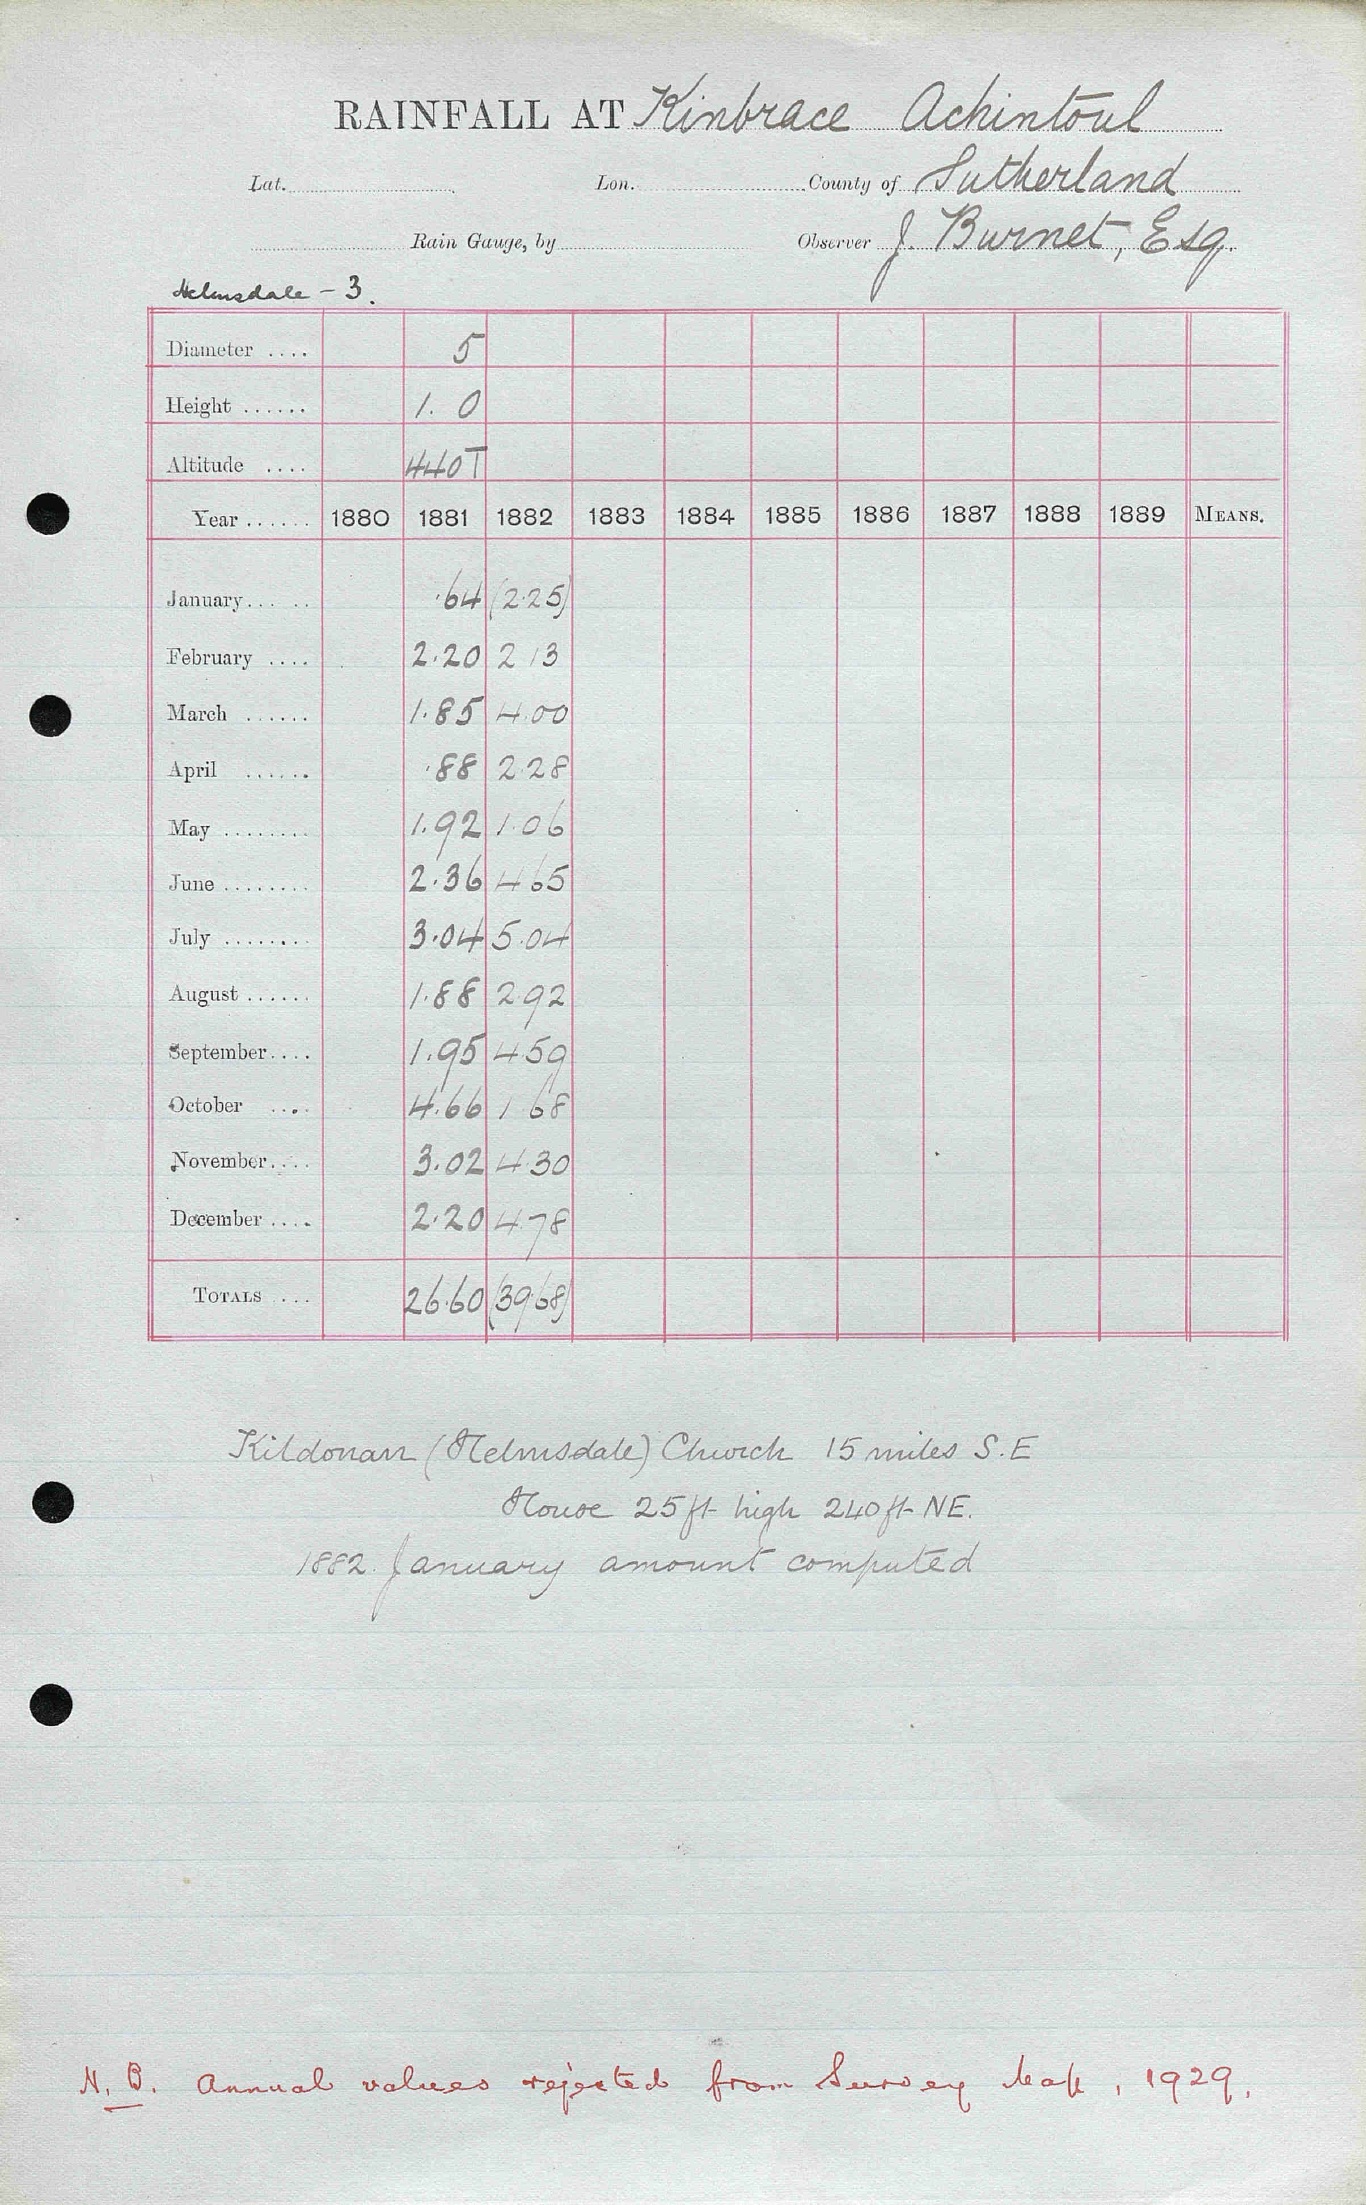 RAINFALL AT Kinbrace Achintoul
Lat. Lon. County of Sutherland
Rain Gauge, by Observer J. Burnet, Esq.
Helmsdale - 3.
Diameter .... 5
Height ...... 1. 0
Altitude .... 440T
Year ...... 1880 1881 1882 1883 1884 1885 1886 1887 1888 1889 MEANS.
January...... .64 (2.25)
February .... 2.20 2 13
March ...... 1.85 4.00
April ...... .88 2.28
May ........ 1.92 1.06
June ........ 2.36 4 65
July ........ 3.04 5.04
August ...... 1.88 2.92
September.... 1.95 4.59
October .... 4.66 1 68
November.... 3.02 4.30
December .... 2.20 4.78
TOTALS ... 26.60 (39.68)
Kildonan (Helmsdale) Church 15 miles S.E
House 25 ft high 240 ft NE.
1882. January amount computed
N.B. Annual values rejected from Survey Map, 1929.